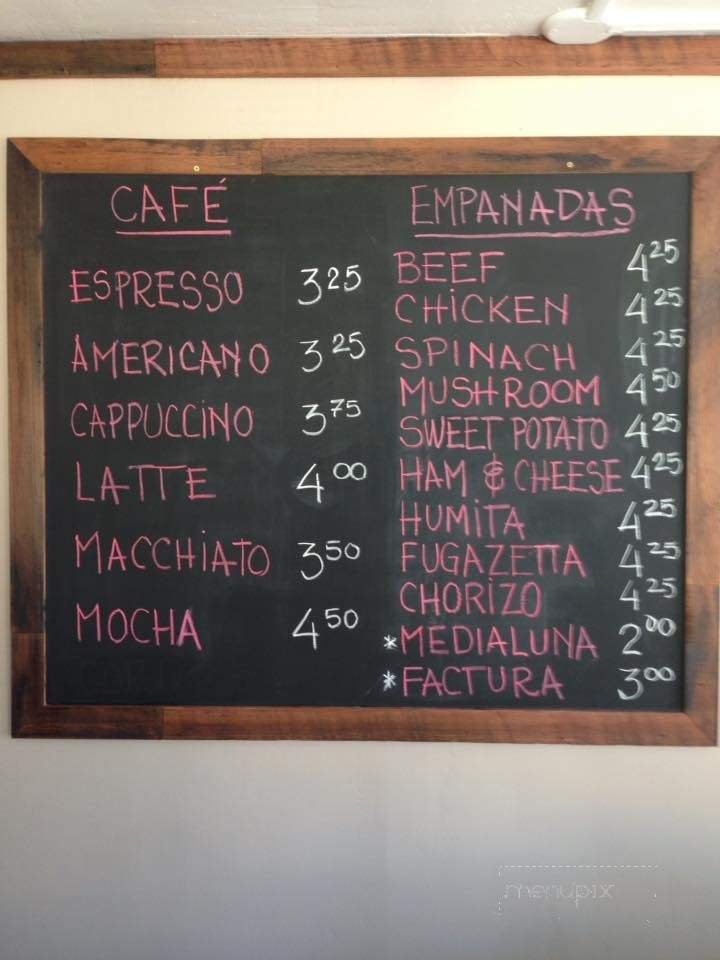 CAFÉ
ESPRESSO 3 25
AMERICANO 3 25
CAPPUCCINO 3 75
LATTE 4 00
MACCHIATO 3 50
MOCHA 4 50
EMPANADAS
BEEF 4 25
CHICKEN 4 25
SPINACH 4 25
MUSHROOM 4 50
SWEET POTATO 4 25
HAM & CHEESE 4 25
HUMITA 4 25
FUGAZETTA 4 25
CHORIZO 4 25
* MEDIALUNA 2 00
* FACTURA 3 00
menupix